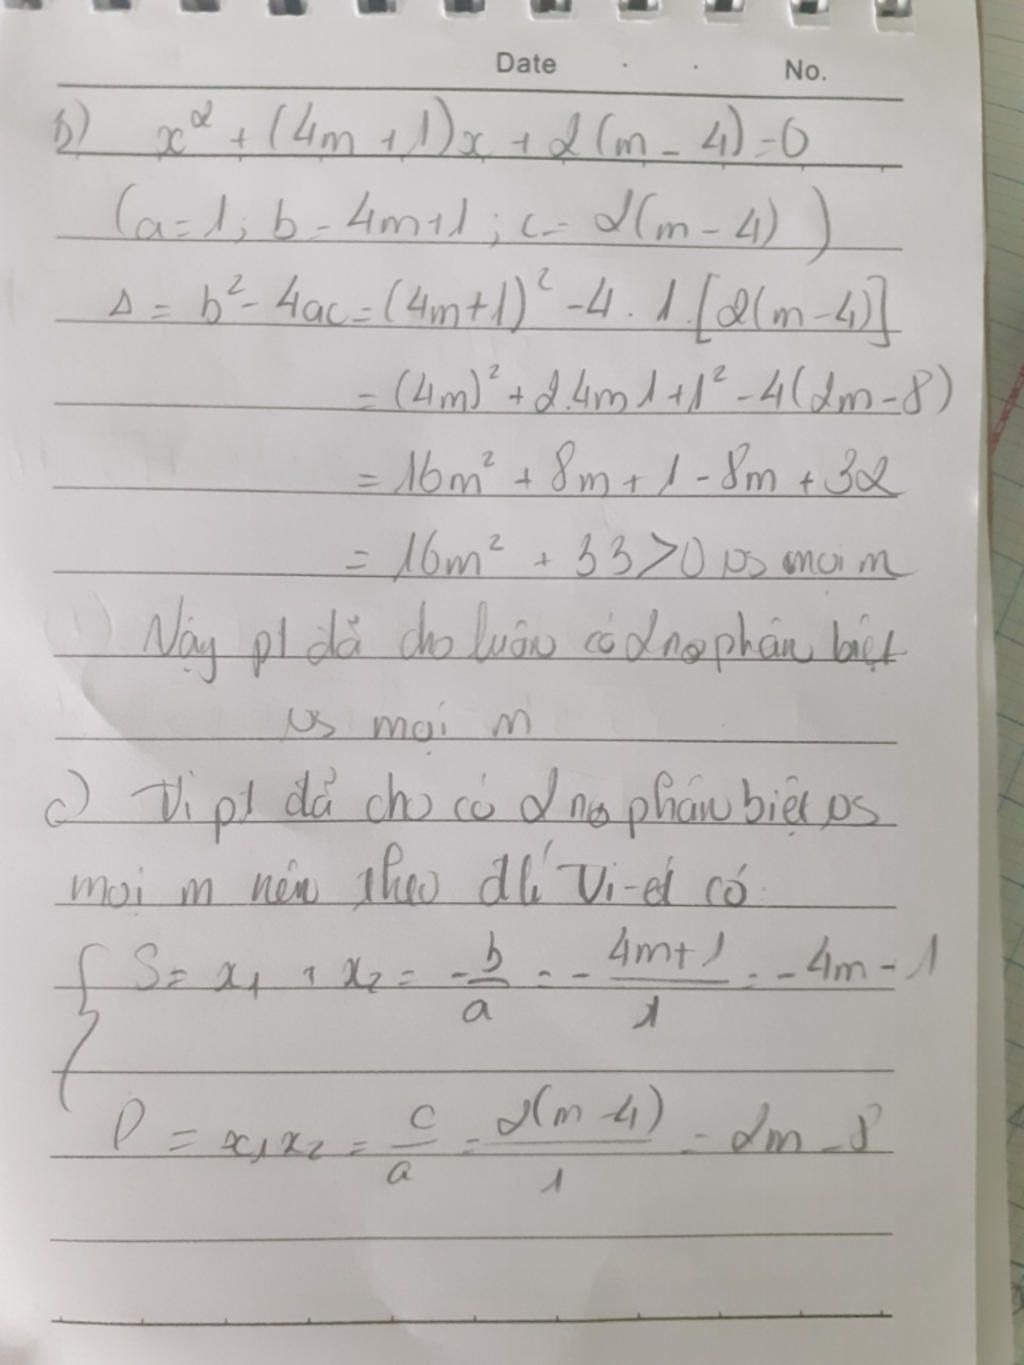 Date . . No.
b) x² + (4m + 1)x + 2(m - 4) = 0
(a = 1; b = 4m+1; c = 2(m - 4))
Δ = b² - 4ac = (4m+1)² - 4 . 1 . [2(m - 4)]
= (4m)² + 2.4m1 + 1² - 4(2m - 8)
= 16m² + 8m + 1 - 8m + 32
= 16m² + 33 > 0 vs mọi m
Vậy pt đã cho luôn có 2 no phân biệt
vs mọi m
c) Vì pt đã cho có 2 no phân biệt vs
mọi m nên theo đlí Vi-ét có:
{ S = x₁ + x₂ = -b/a = - (4m+1)/1 = -4m - 1
P = x₁x₂ = c/a = 2(m - 4)/1 = 2m - 8